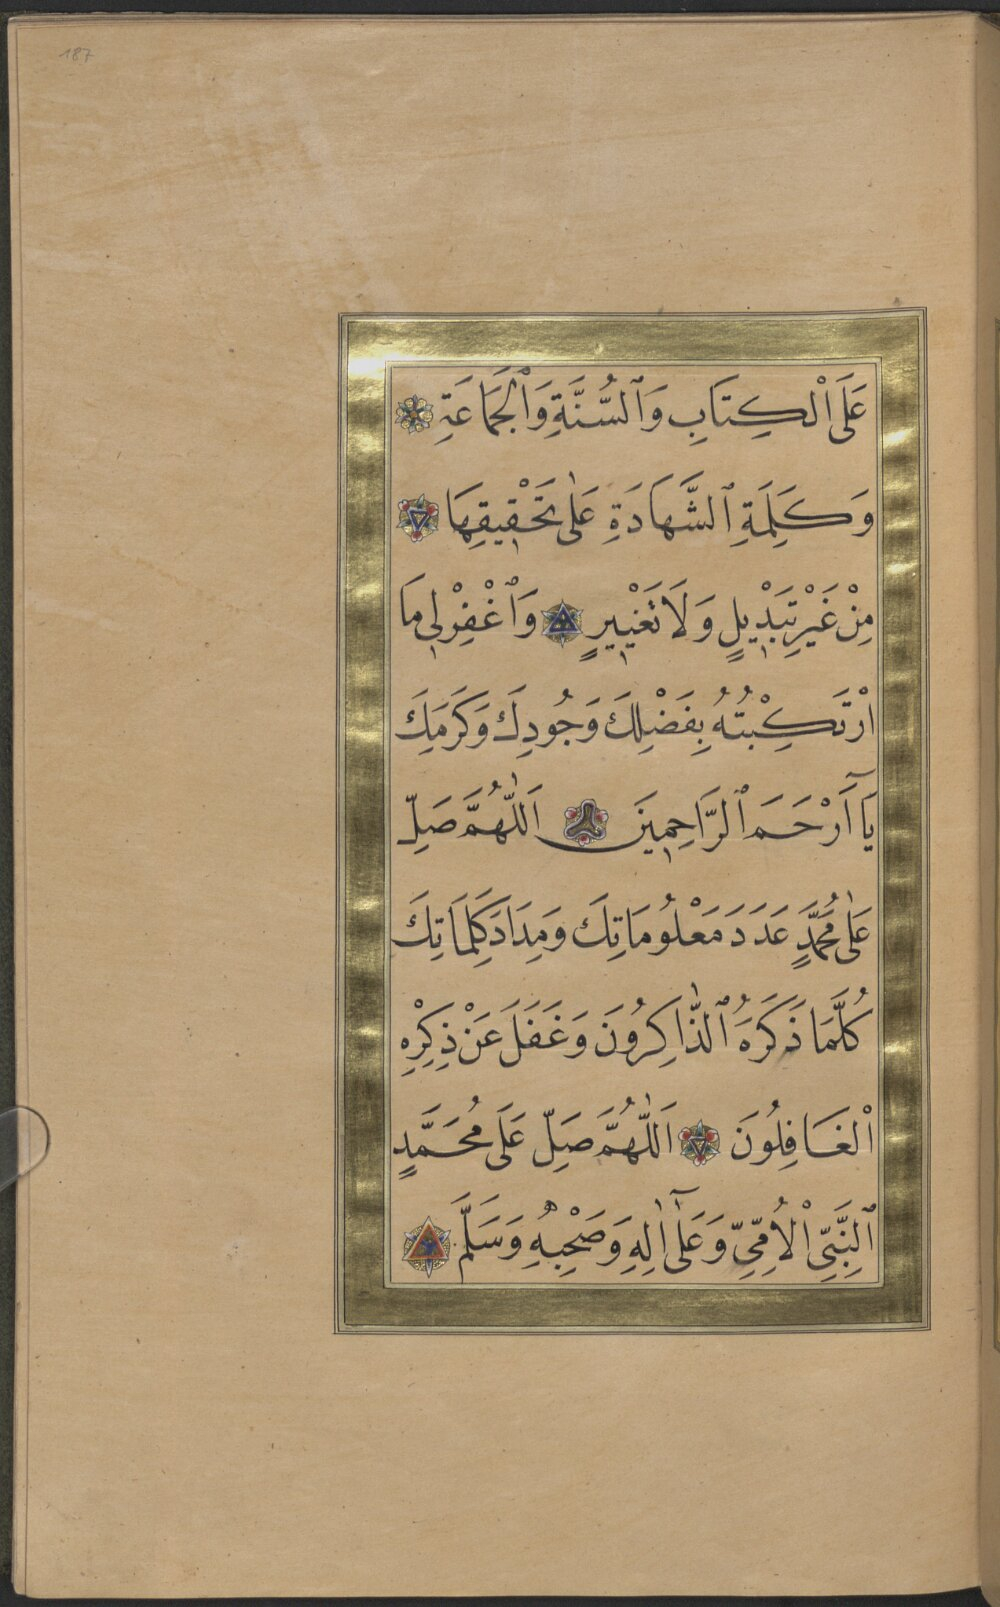 187
عَلَى اْلكِتَابِ وَٱلسُّنَّةِ وَٱلْجَمَاعَةِ
وَكَلِمَةِ ٱلشَّهَادَةِ عَلٰى تَحْقِيقِهَا
مِنْ غَيْرِ تَبْدِيلٍ وَلَا تَغْيِيرٍ وَٱغْفِرْلِي مَا
اْرتَكَبْتُهُ بِفَضْلِكَ وَجُودِكَ وَكَرَمِكَ
يَآ اَرْحَمَ ٱلرَّاحِمِينَ اَللّٰهُمَّ صَلِّ
عَلٰى مُحَمَّدٍ عَدَدَ مَعْلُومَاتِكَ وَمِدَادَ كَلِمَاتِكَ
كُلَّمَا ذَكَرَهُ ٱلذّٰاكِرُونَ وَغَفَلَ عَنْ ذِكْرِهِ
اْلغَافِلُونَ اَللّٰهُمَّ صَلِّ عَلَى مُحَمَّدٍ
ٱلنَّبِيِّ اْلاُمِّيِّ وَعَلَىٓ اٰلِهِ وَصَحْبِهِ وَسَلَّمَ